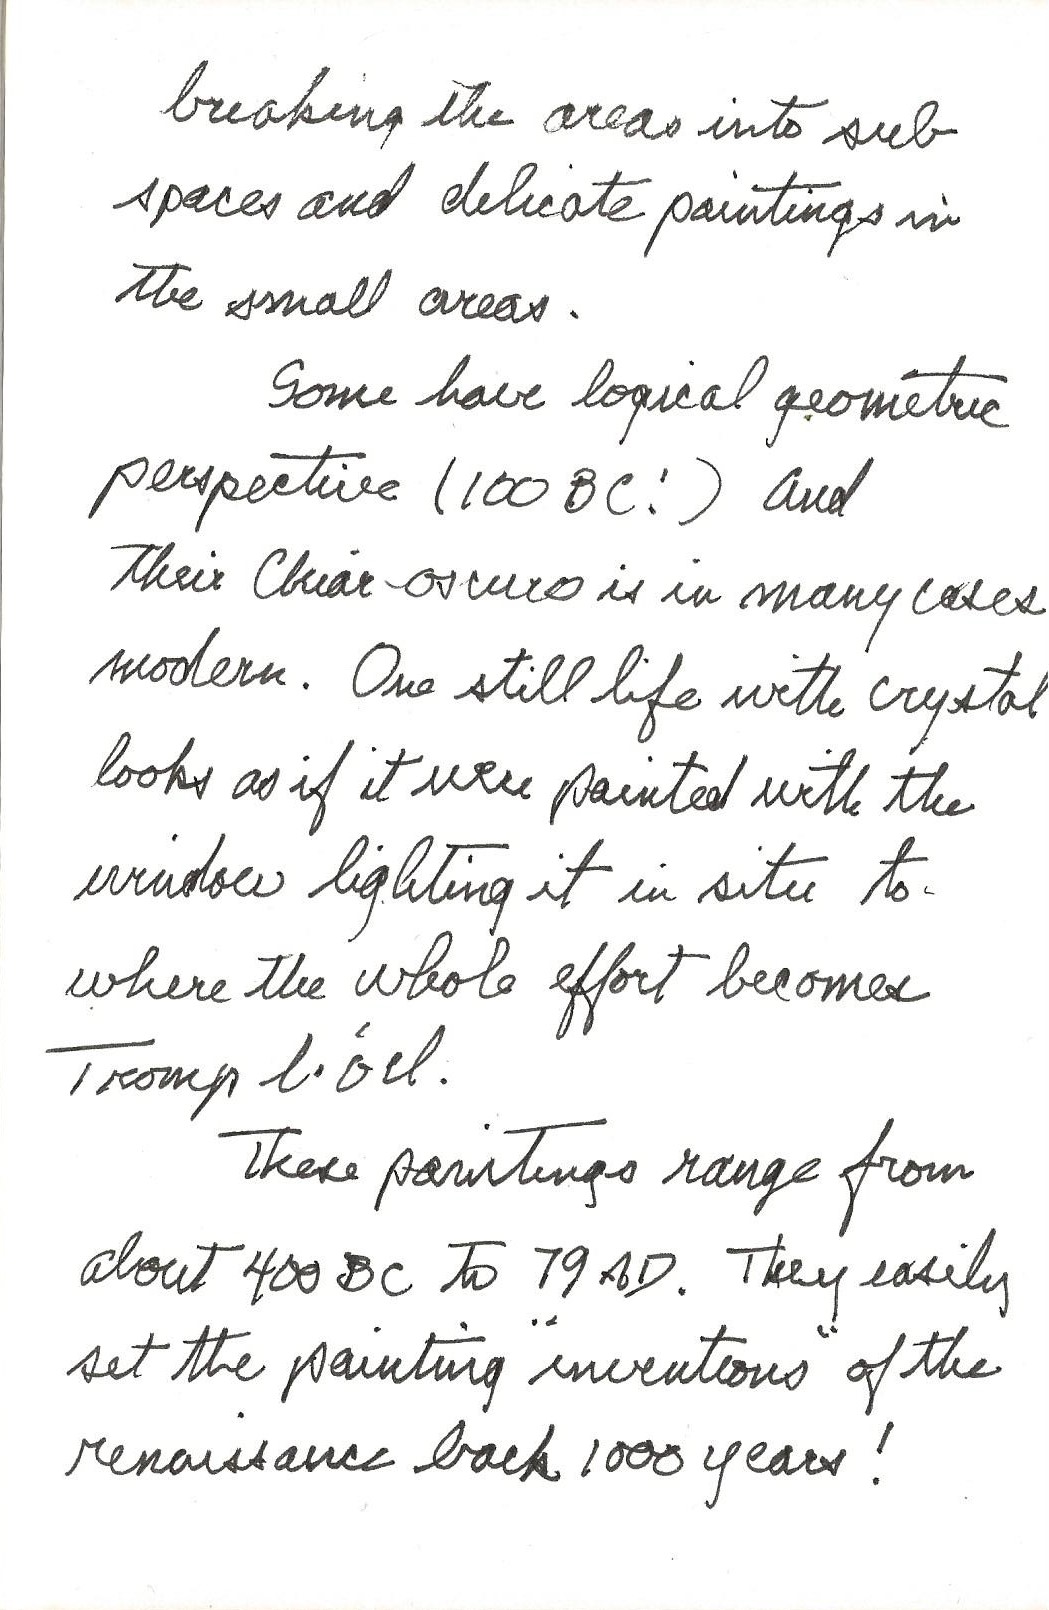 breaking the areas into sub
spaces and delicate paintings in
the small areas.
Some have logical geometric
perspective (100 BC!) and
their Chiar-oscuro is in many cases
modern. One still life with crystal
looks as if it were painted with the
window lighting it in situ to-
where the whole effort becomes
Tromp l'óel.
These paintings range from
about 400 BC to 79 AD. They easily
set the painting "inventions" of the
renaissance back 1000 years!